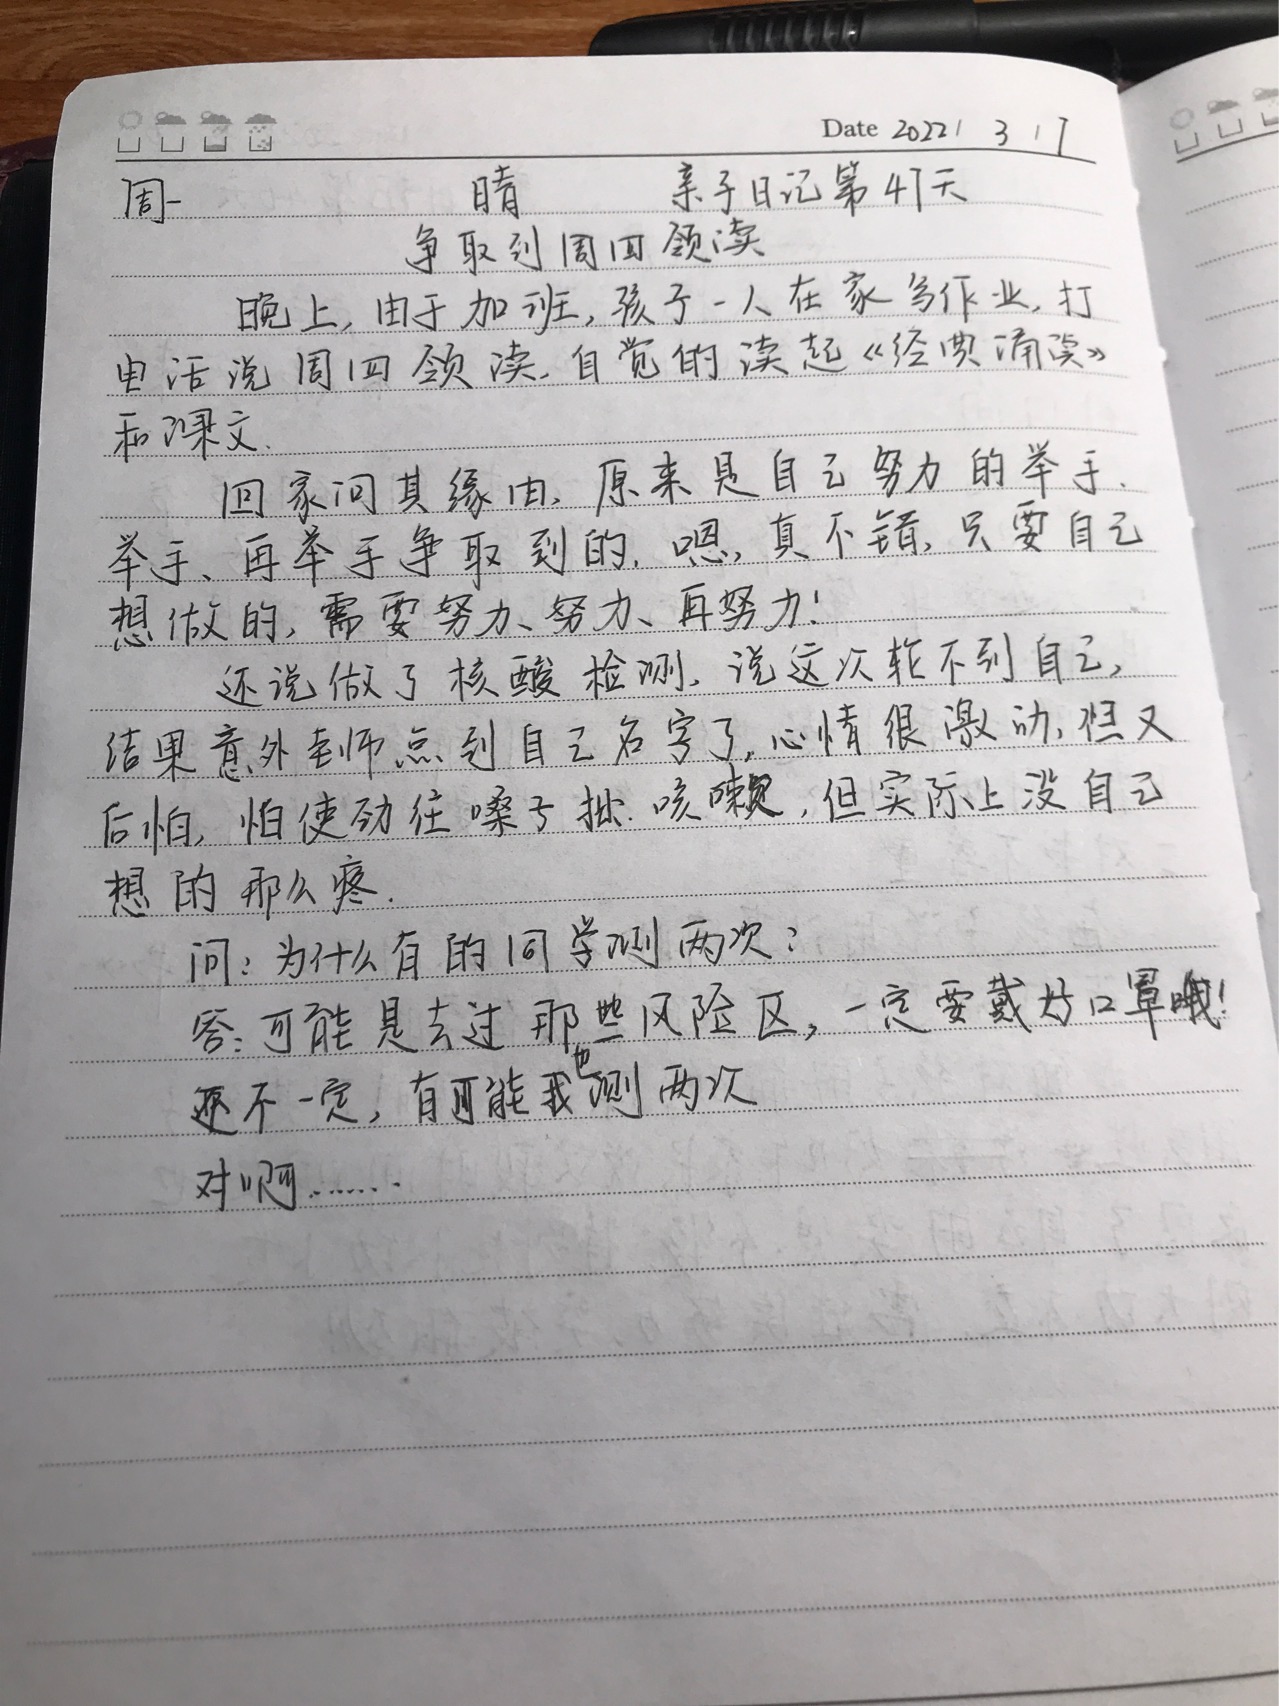 Date 2022 / 3 / 7
周一 晴 亲子日记第47天
争取到周四领读
晚上,由于加班,孩子一人在家写作业,打
电话说周四领读,自觉的读起《经典诵读》
和课文.
回家问其缘由,原来是自己努力的举手、
举手、再举手争取到的,嗯,真不错,只要自己
想做的,需要努力、努力、再努力!
还说做了核酸检测,说这次轮不到自己,
结果意外老师点到自己名字了,心情很激动,但又
后怕,怕使劲往嗓子拙.咳嗽,但实际上没自己
想的那么疼.
问:为什么有的同学测两次?
答:可能是去过那些风险区,一定要戴好口罩哦!
还不一定,有可能我也测两次
对啊.......